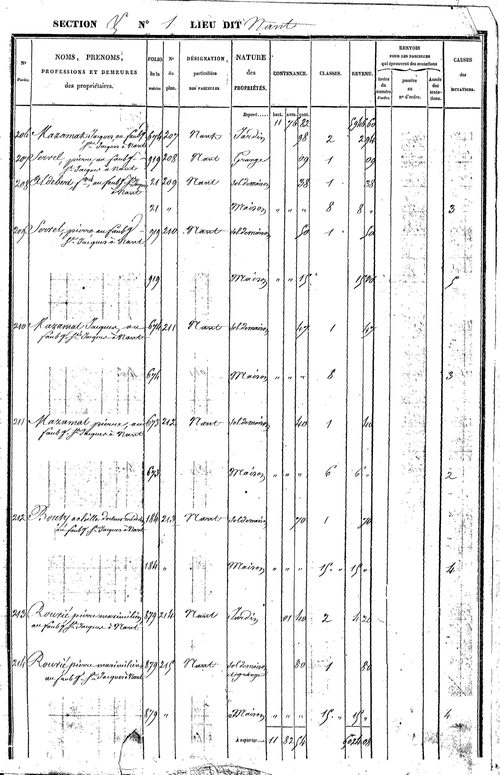 SECTION Y N° 1 LIEU DIT Nant
N° d'ordre.
NOMS, PRENOMS, PROFESSIONS ET DEMEURES des propriétaires.
FOLIO de la matrice
N° du plan.
DÉSIGNATION particulière DES PARCELLES.
NATURE des PROPRIÉTÉS.
CONTENANCE.
CLASSES.
REVENU.
RENVOIS POUR LES PARCELLES qui éprouvent des mutations
tirées du numéro d'ordre.
passées au n° d'ordre.
Année des mutations.
CAUSES des MUTATIONS.
Report 11 74 82 5946 60
206 Mazamat Jacques au faubg St Jacques à Nant 674 207 Nant Jardin 98 2 2 94
207 Sorrel, pierre au faubg St Jacques à Nant 919 208 Nant Grange 09 1 09
208 21 209 Nant sol de maison 38 1 38
21 " Maison " " " 8 8 " 3
209 Sorrel, pierre au faubg St Jacques à Nant 919 210 Nant sol de maison 50 1 50
919 Maison " " 15 5
210 Mazamat Jacques, au faubg St Jacques à Nant 674 211 Nant sol de maison 47 1 47
674 Maison " " " 8 3
211 Mazamat pierre, au faubg St Jacques à Nant 673 212 Nant sol de maison 40 1 40
673 Maison " " " 6 6 " 2
212 184 213 Nant sol de maison 70 1 70
au faubg St Jacques à Nant
184 " Maison " " " 15 " 15 " 4
213 Rouvié pierre maximilien au faubg St Jacques à Nant 879 214 Nant Jardin 01 40 2 4 20
214 Rouvié pierre maximilien au faubg St Jacques à Nant 879 215 Nant sol de maison et grange 80 1 80
879 " Maison " " " 15 " 15 " 4
A reporter 11 82 54